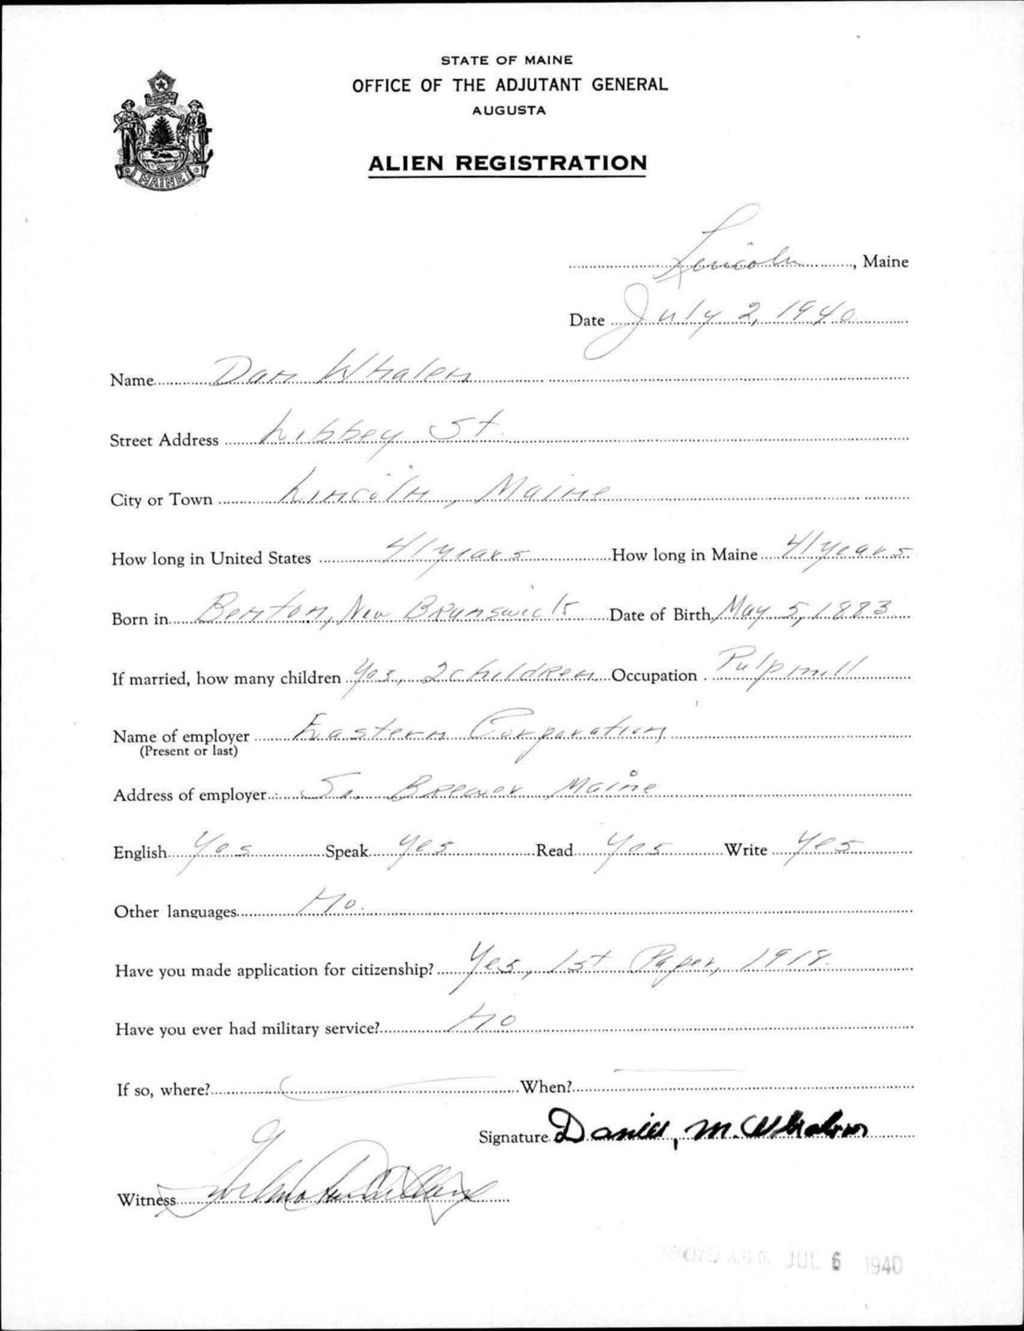 STATE OF MAINE
OFFICE OF THE ADJUTANT GENERAL
AUGUSTA
MAINE
ALIEN REGISTRATION
Lincoln, Maine
Date July 2, 1940
Name Dan Whalen
Street Address Libbey St.
City or Town Lincoln, Maine
How long in United States 41 years How long in Maine 41 years
Born in Benton, New Brunswick Date of Birth May 5, 1883
If married, how many children Yes, 2 children Occupation Pulp mill
Name of employer Eastern Corporation
(Present or last)
Address of employer So. Brewer Maine
English Yes Speak Yes Read Yes Write Yes
Other languages No.
Have you made application for citizenship? Yes, 1st Paper, 1918.
Have you ever had military service? No
If so, where? When?
Signature Daniel, M. Whalen
Witness
RECEIVED A.G.O. JUL 6 1940